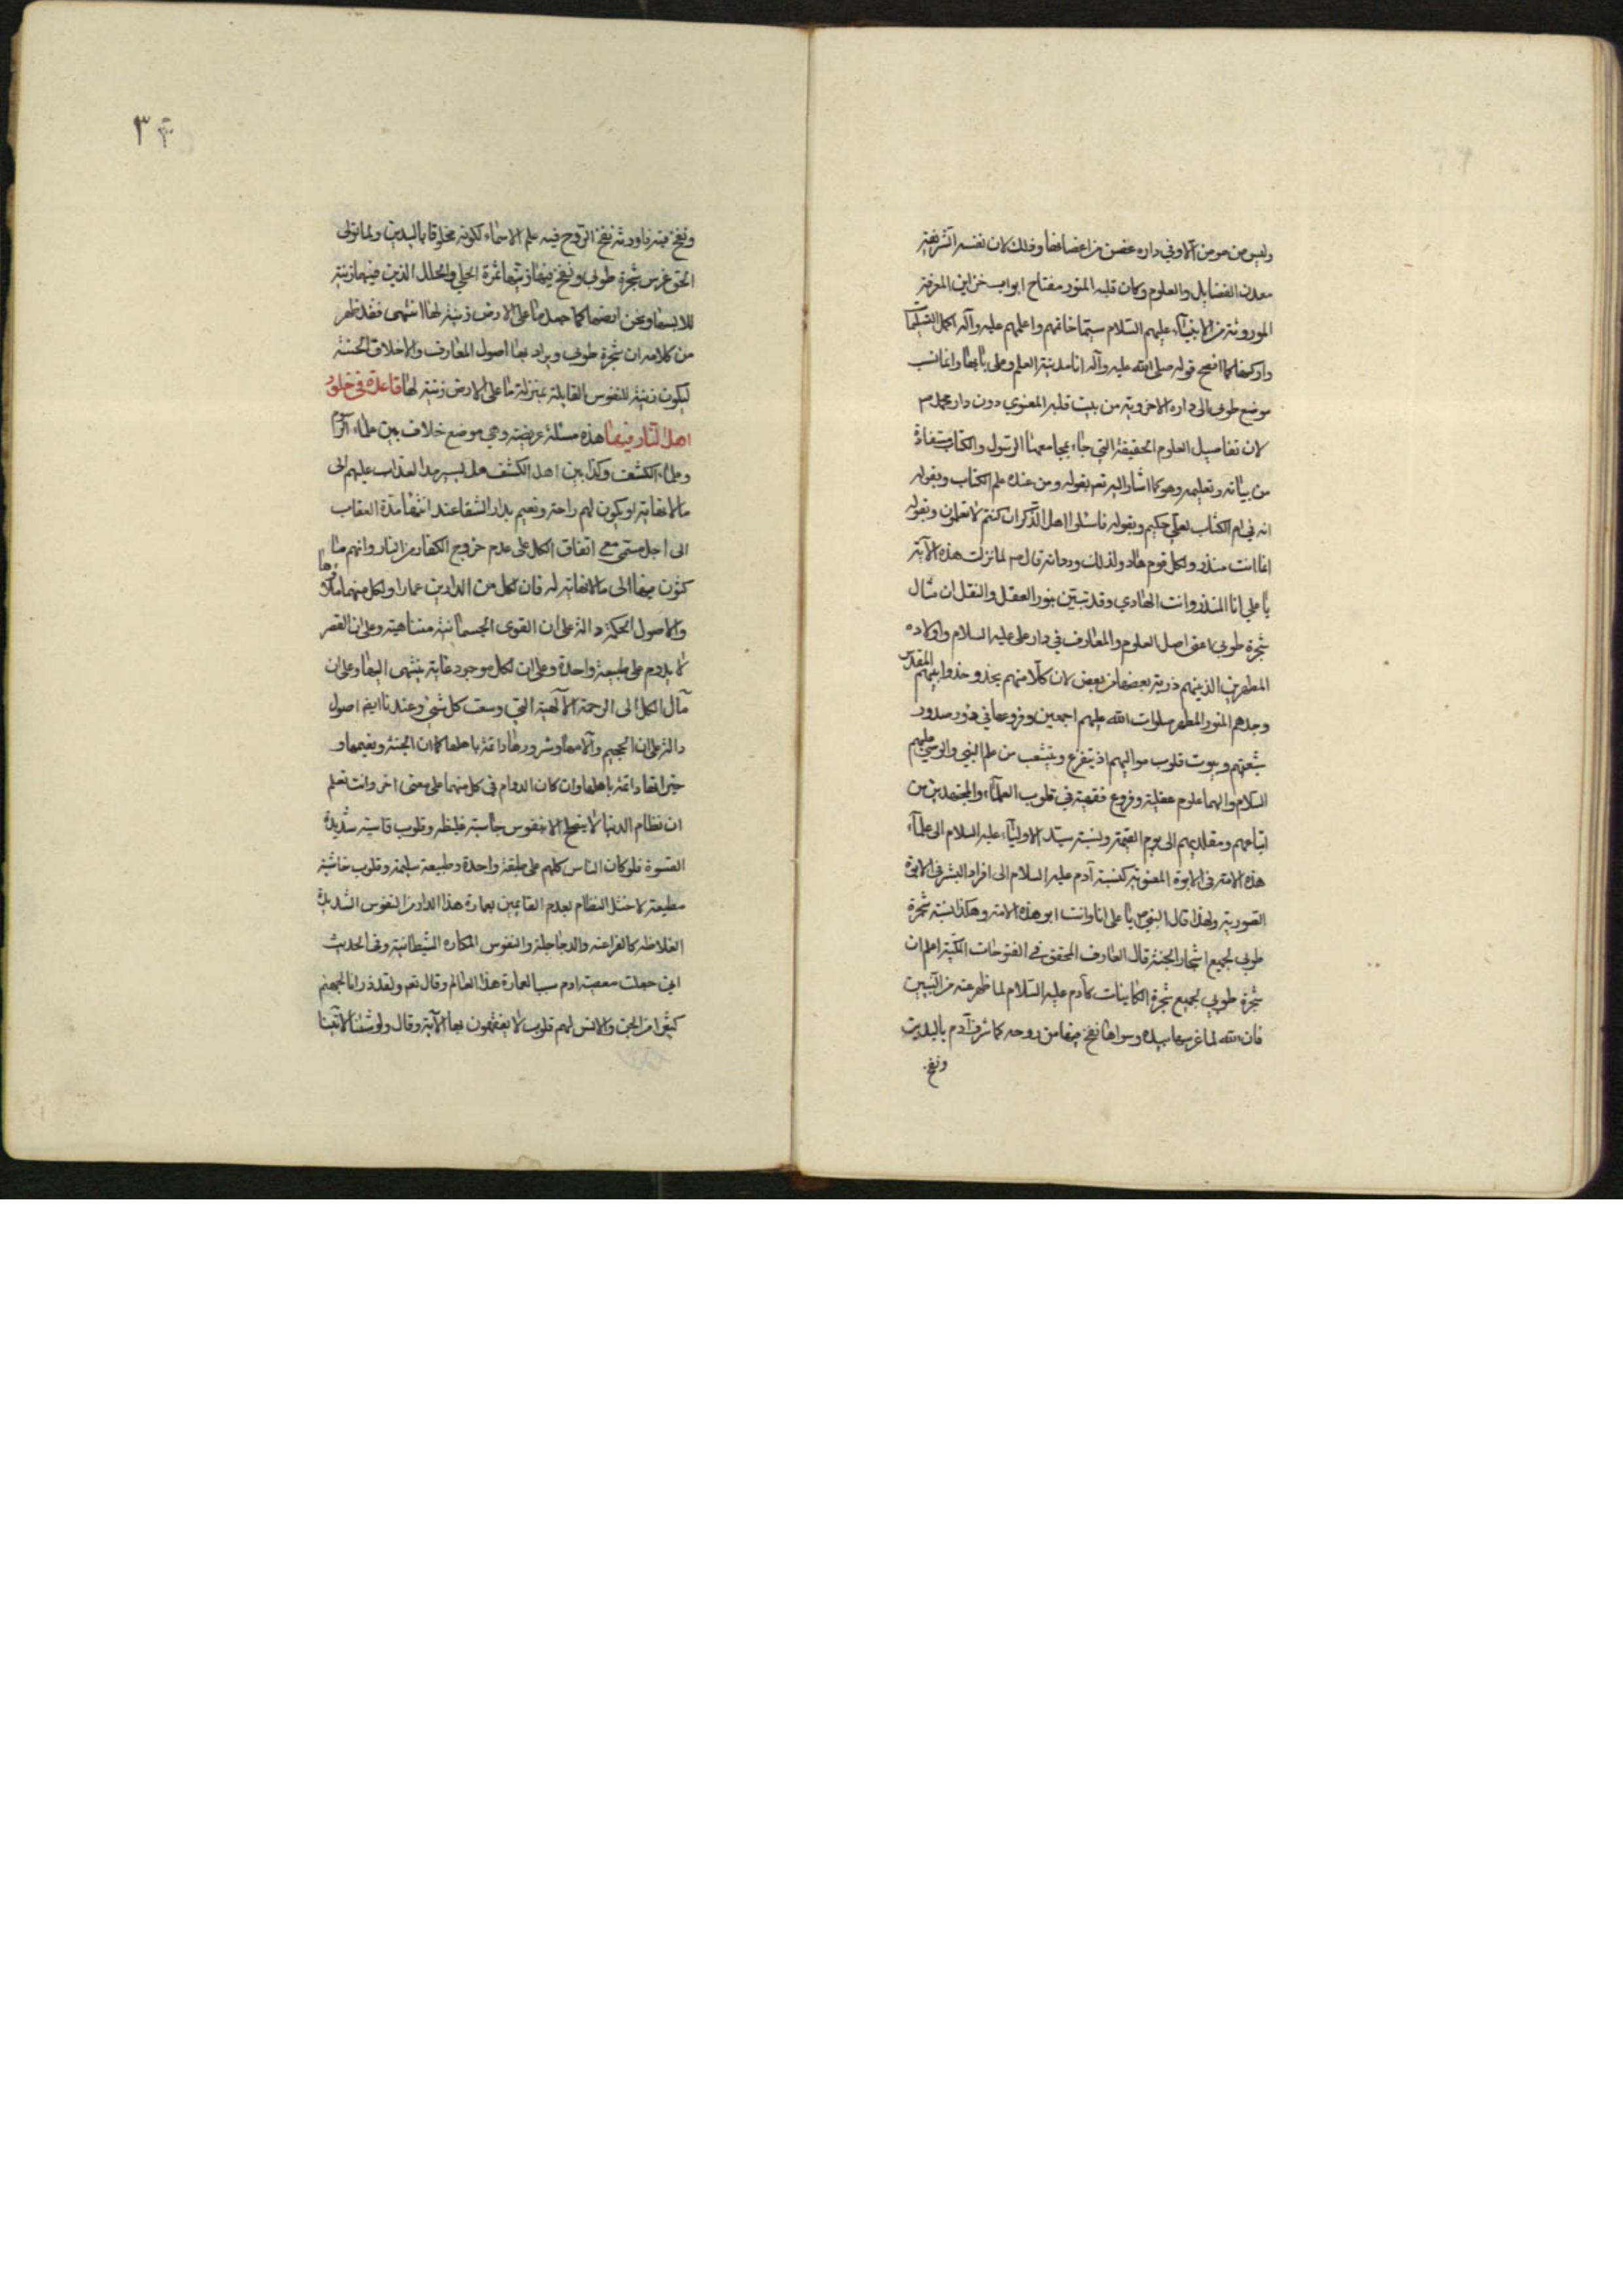 وليس من مومن الا وفي داره غصن من اغصانها وذلك لان نفسه الشريفة
معدن الفضايل والعلوم وكان قلبه المنور مفتاح ابواب خزاين المعرفة
الموروثة من الانبيآء عليهم السلام سيما خاتمهم واعلمهم عليه وآله اكمل التسليمات
وازكيها كما افصح قوله صلى الله عليه وآله انا مدينة العلم وعلي بابها وانما نسب
موضع طوبى الى داره الاخروية من بيت قلبه المعنوي دون دار محمد ص
لان تفاصيل العلوم الحقيقة التي جاء بمجامعها الرسول والكتاب مستفادة
من بيانه وتعليمه وهو كما اشار اليه تعم بقوله ومن عنده علم الكتاب وبقوله
انه في ام الكتاب لعلي حكيم وبقوله فاسئلوا اهل الذكر ان كنتم لا تعلمون وبقوله
انما انت منذر ولكل قوم هاد ولذلك ورد انه قال ص لما نزلت هذه الآية
يا علي انا المنذر وانت الهادي وقد تبين بنور العقل والنقل ان مثال
شجرة طوبى اعنى اصل العلوم والمعارف في دار علي عليه السلام واولاده
المطهرين الذينهم ذرية بعضها من بعض لان كلا منهم يحذو حذو ابيهم المقدس
وجدهم المنور المطهر صلوات الله عليهم اجمعين وفروعها في دور صدور
شيعتهم وبيوت قلوب مواليهم اذ يتفرع وينشعب من علم النبي والوصي عليهم
السلام والهما علوم عقلية وفروع فقهية في قلوب العلمآء والمجتهدين من
اتباعهم ومقلديهم الى يوم القيمة ونسبة سيد الاوليآء عليه السلام الى علمآء
هذه الامة في الابوة المعنوية كنسبة آدم عليه السلام الى افراد البشر في الابوة
الصورية ولهذا قال النبي ص يا علي انا وانت ابو هذه الامة وهكذا نسبة شجرة
طوبى لجميع اشجار الجنة قال العارف المحقق في الفتوحات المكية اعلم ان
شجرة طوبى لجميع شجرة الكاينات كآدم عليه السلام لما ظهر عنه من النبيين
فان الله لما غرسها بيده وسواها نفخ فيها من روحه كما شرف آدم باليدين
ونفخ
٣
ونفخ فيه فاورثه نفخ الروح فيه علم الاسماء لكونه مخلوقا باليدين ولما تولى
الحق غرس شجرة طوبى ونفخ فيها زينها بثمرة الحلي والحلل الذين فيهما زينة
للابسها ونحن ارضها كما جعل ما على الارض زينة لها انتهى فقد ظهر
من كلامه ان شجرة طوبى ويراد بها اصول المعارف والاخلاق الحسنة
ليكون زينة للنفوس القابلة بمنزلة ما على الارض زينة لها قاعدة في خلود
اهل النار فيها هذه مسئلة عويصة وهي موضع خلاف بين علماء الرسوم
وعلماء الكشف وكذا بين اهل الكشف هل يسرمد العذاب عليهم الى
ما لا نهاية او يكون لهم راحة ونعيم بدار الشقا عند انتهاء مدة العقاب
الى اجل مسمى مع اتفاق الكل على عدم خروج الكفار من النار وانهم ما
كثون فيها الى ما لا نهاية له فان لكل من الدارين عمارا ولكل منهما ملاؤها
والاصول الحكمة دالة على ان القوى الجسمانية متناهية وعلى ان القسر
لا يدوم على طبيعة واحدة وعلى ان لكل موجود غاية ينتهى اليها وعلى ان
مآل الكل الى الرحمة الالهية التي وسعت كل شيء وعندنا ايضا اصول
دالة على ان الجحيم وآلامها وشرورها دائمة باهلها كما ان الجنة ونعيمها و
خيراتها دائمة باهلها وان كان الدوام في كل منهما على معنى اخر وانت تعلم
ان نظام الدنيا لا ينصلح الا بنفوس جاسية غليظة وقلوب قاسية شديدة
القسوة فلو كان الناس كلهم على طبقة واحدة وطبيعة سليمة وقلوب خاشية
مطيعة لاختل النظام بعدم القايمين بعمارة هذا الدار من النفوس الشديدة
الغلاظة كالفراعنه والدجاجلة والنفوس المكاره الشيطانية وفي الحديث
اني جعلت معصية ادم سببا لعمارة هذا العالم وقال تعم ولقد ذرانا لجهنم
كثيرا من الجن والانس لهم قلوب لا يفقهون بها الآية وقال ولو شئنا لآتينا